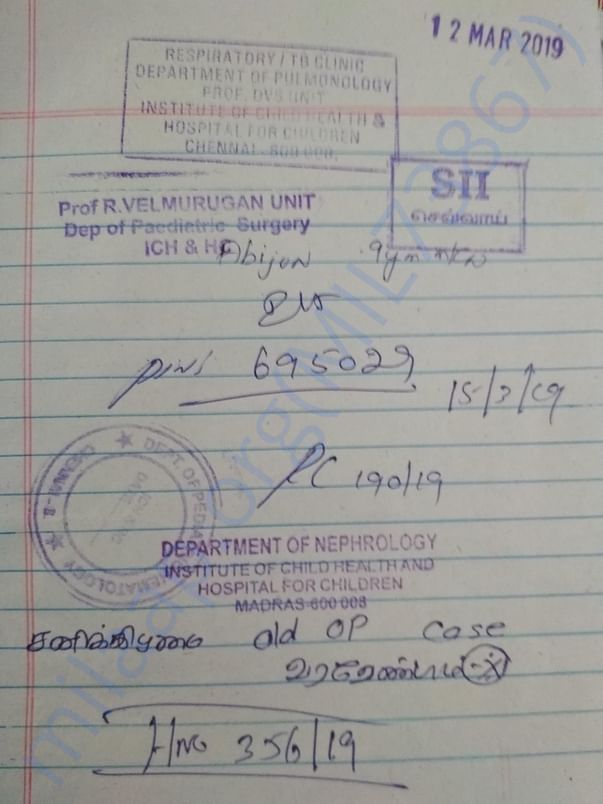 12 MAR 2019
RESPIRATORY / TB CLINIC
DEPARTMENT OF PULMONOLOGY
PROF. DVS UNIT
INSTITUTE OF CHILD HEALTH &
HOSPITAL FOR CHILDREN
CHENNAI - 600 008.
SII
செவ்வாய்
Prof R.VELMURUGAN UNIT
Dep of Paediatric Surgery
ICH & HC
695029
15/3/19
190/19
DEPT. OF PEDIATRIC HEMATOLOGY
CHENNAI-8
DEPARTMENT OF NEPHROLOGY
INSTITUTE OF CHILD HEALTH AND
HOSPITAL FOR CHILDREN
MADRAS-600 008
சனிக்கிழமை old OP case
வரவேண்டாம்
H/NO 356/19